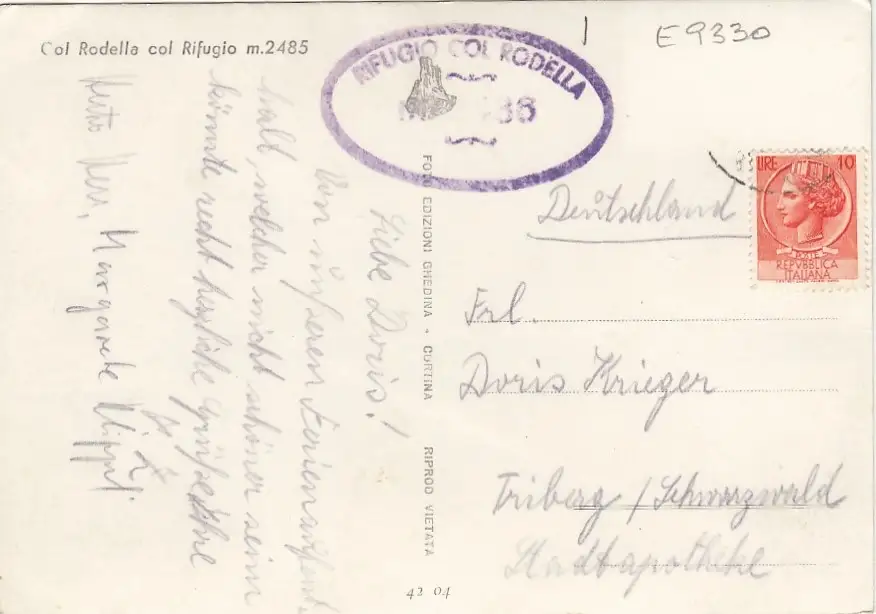 Col Rodella col Rifugio m.2485
E9330
RIFUGIO COL RODELLA
LIRE 10
POSTE
REPVBBLICA
ITALIANA
Deutschland
Frl.
Doris Krieger
Triberg / Schwarzwald
Stadtapotheke
FOTO EDIZIONI GHEDINA - CORTINA RIPROD VIETATA
42 04
Liebe Doris!
Von unseren Ferienaufent-
halt, welcher nicht schöner sein
könnte recht herzliche Grüße
Margarete